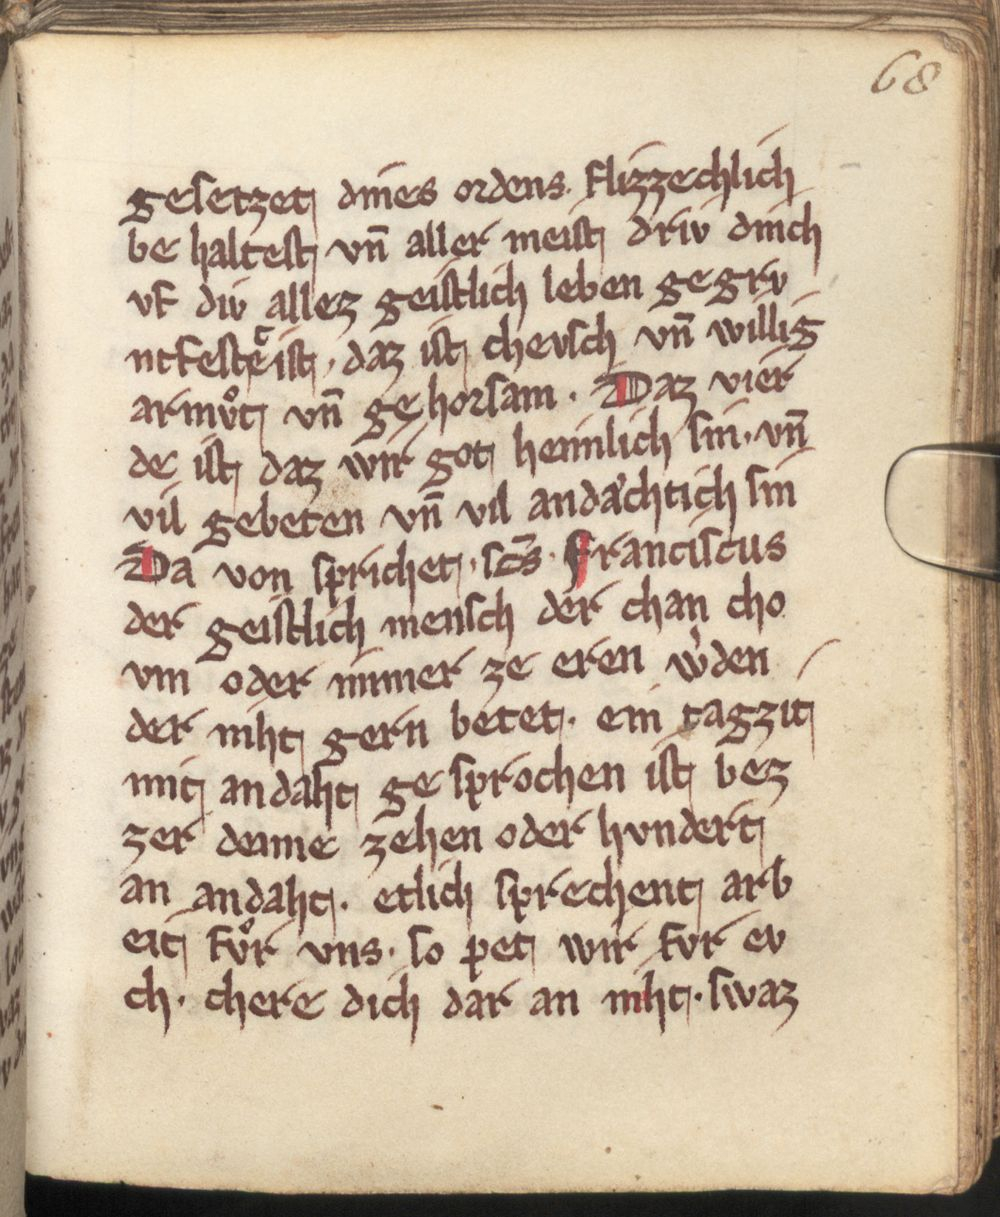 68
gesetzet dines ordens. flizzechlich
be haltest vn̄ aller meist driv dinch
vf div allez geistlich leben gegrv
ntfestet ist, daz ist chevsch vn̄ willig
armvͦt vn̄ gehorsam. Daz vier
de ist daz wir got heimlich sin. vn̄
vil gebeten vn̄ vil andaͤchtich sin
Da von sprichet. sc̄s. Franciscus
der geistlich mensch der chan cho
vm oder nimer ze eren w̓den
der niht gern betet. ein tagzit
mit andaht ge sprochen ist bez
zer denne zehen oder hvndert
an andaht. etlich sprechent arb
eit fvͦr vns. so pet wir fvr ev
ch. chere dich dar an niht. swaz